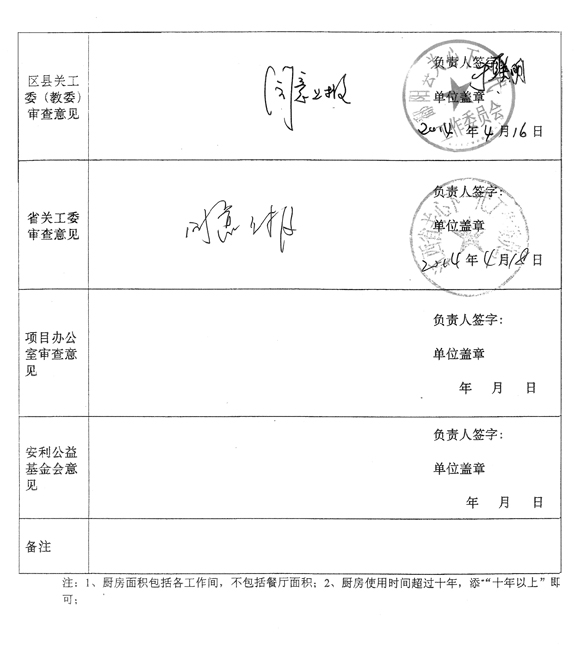 区县关工
委（教委）
审查意见
同意上报
负责人签字:
单位盖章
作委员会
2014 年 4 月 16 日
省关工委
审查意见
同意上报
负责人签字:
单位盖章
2014 年 4 月 18 日
项目办公
室审查意
见
负责人签字:
单位盖章
年 月 日
安利公益
基金会意
见
负责人签字:
单位盖章
年 月 日
备注
注: 1、厨房面积包括各工作间，不包括餐厅面积; 2、厨房使用时间超过十年，添“十年以上”即
可;